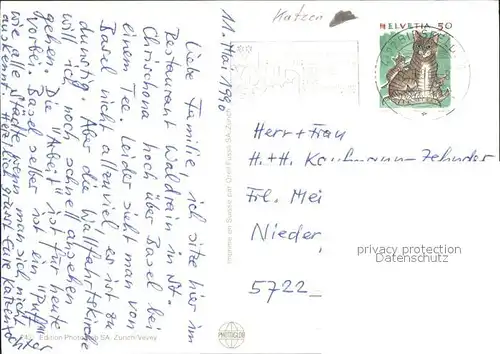 Katzen
HELVETIA 50
11. Mai 1990
Liebe Familie, ich sitze hier im
Restaurant Waldrain in St.
Chrischona hoch über Basel bei
einem Tee. Leider sieht man von
Basel nicht allzuviel, es ist zu
dunstig. Aber die Wallfahrtskirche
will ich noch schnell ansehen
gehen. Die "Arbeit" ist für heute
vorbei. Basel selber ist ein "Puff"
wie alle Städte wenn man sich nicht
auskennt. Herzlich grüsst Eure Katzentochter
Edition Photoglob SA, Zürich/Vevey
Imprimé en Suisse par Orell Füssli SA, Zürich
PHOTOGLOB
Herr + Frau
H. + H. Kaufmann-Zehnder
Frl. Mei
Nieder
5722
privacy protection
Datenschutz